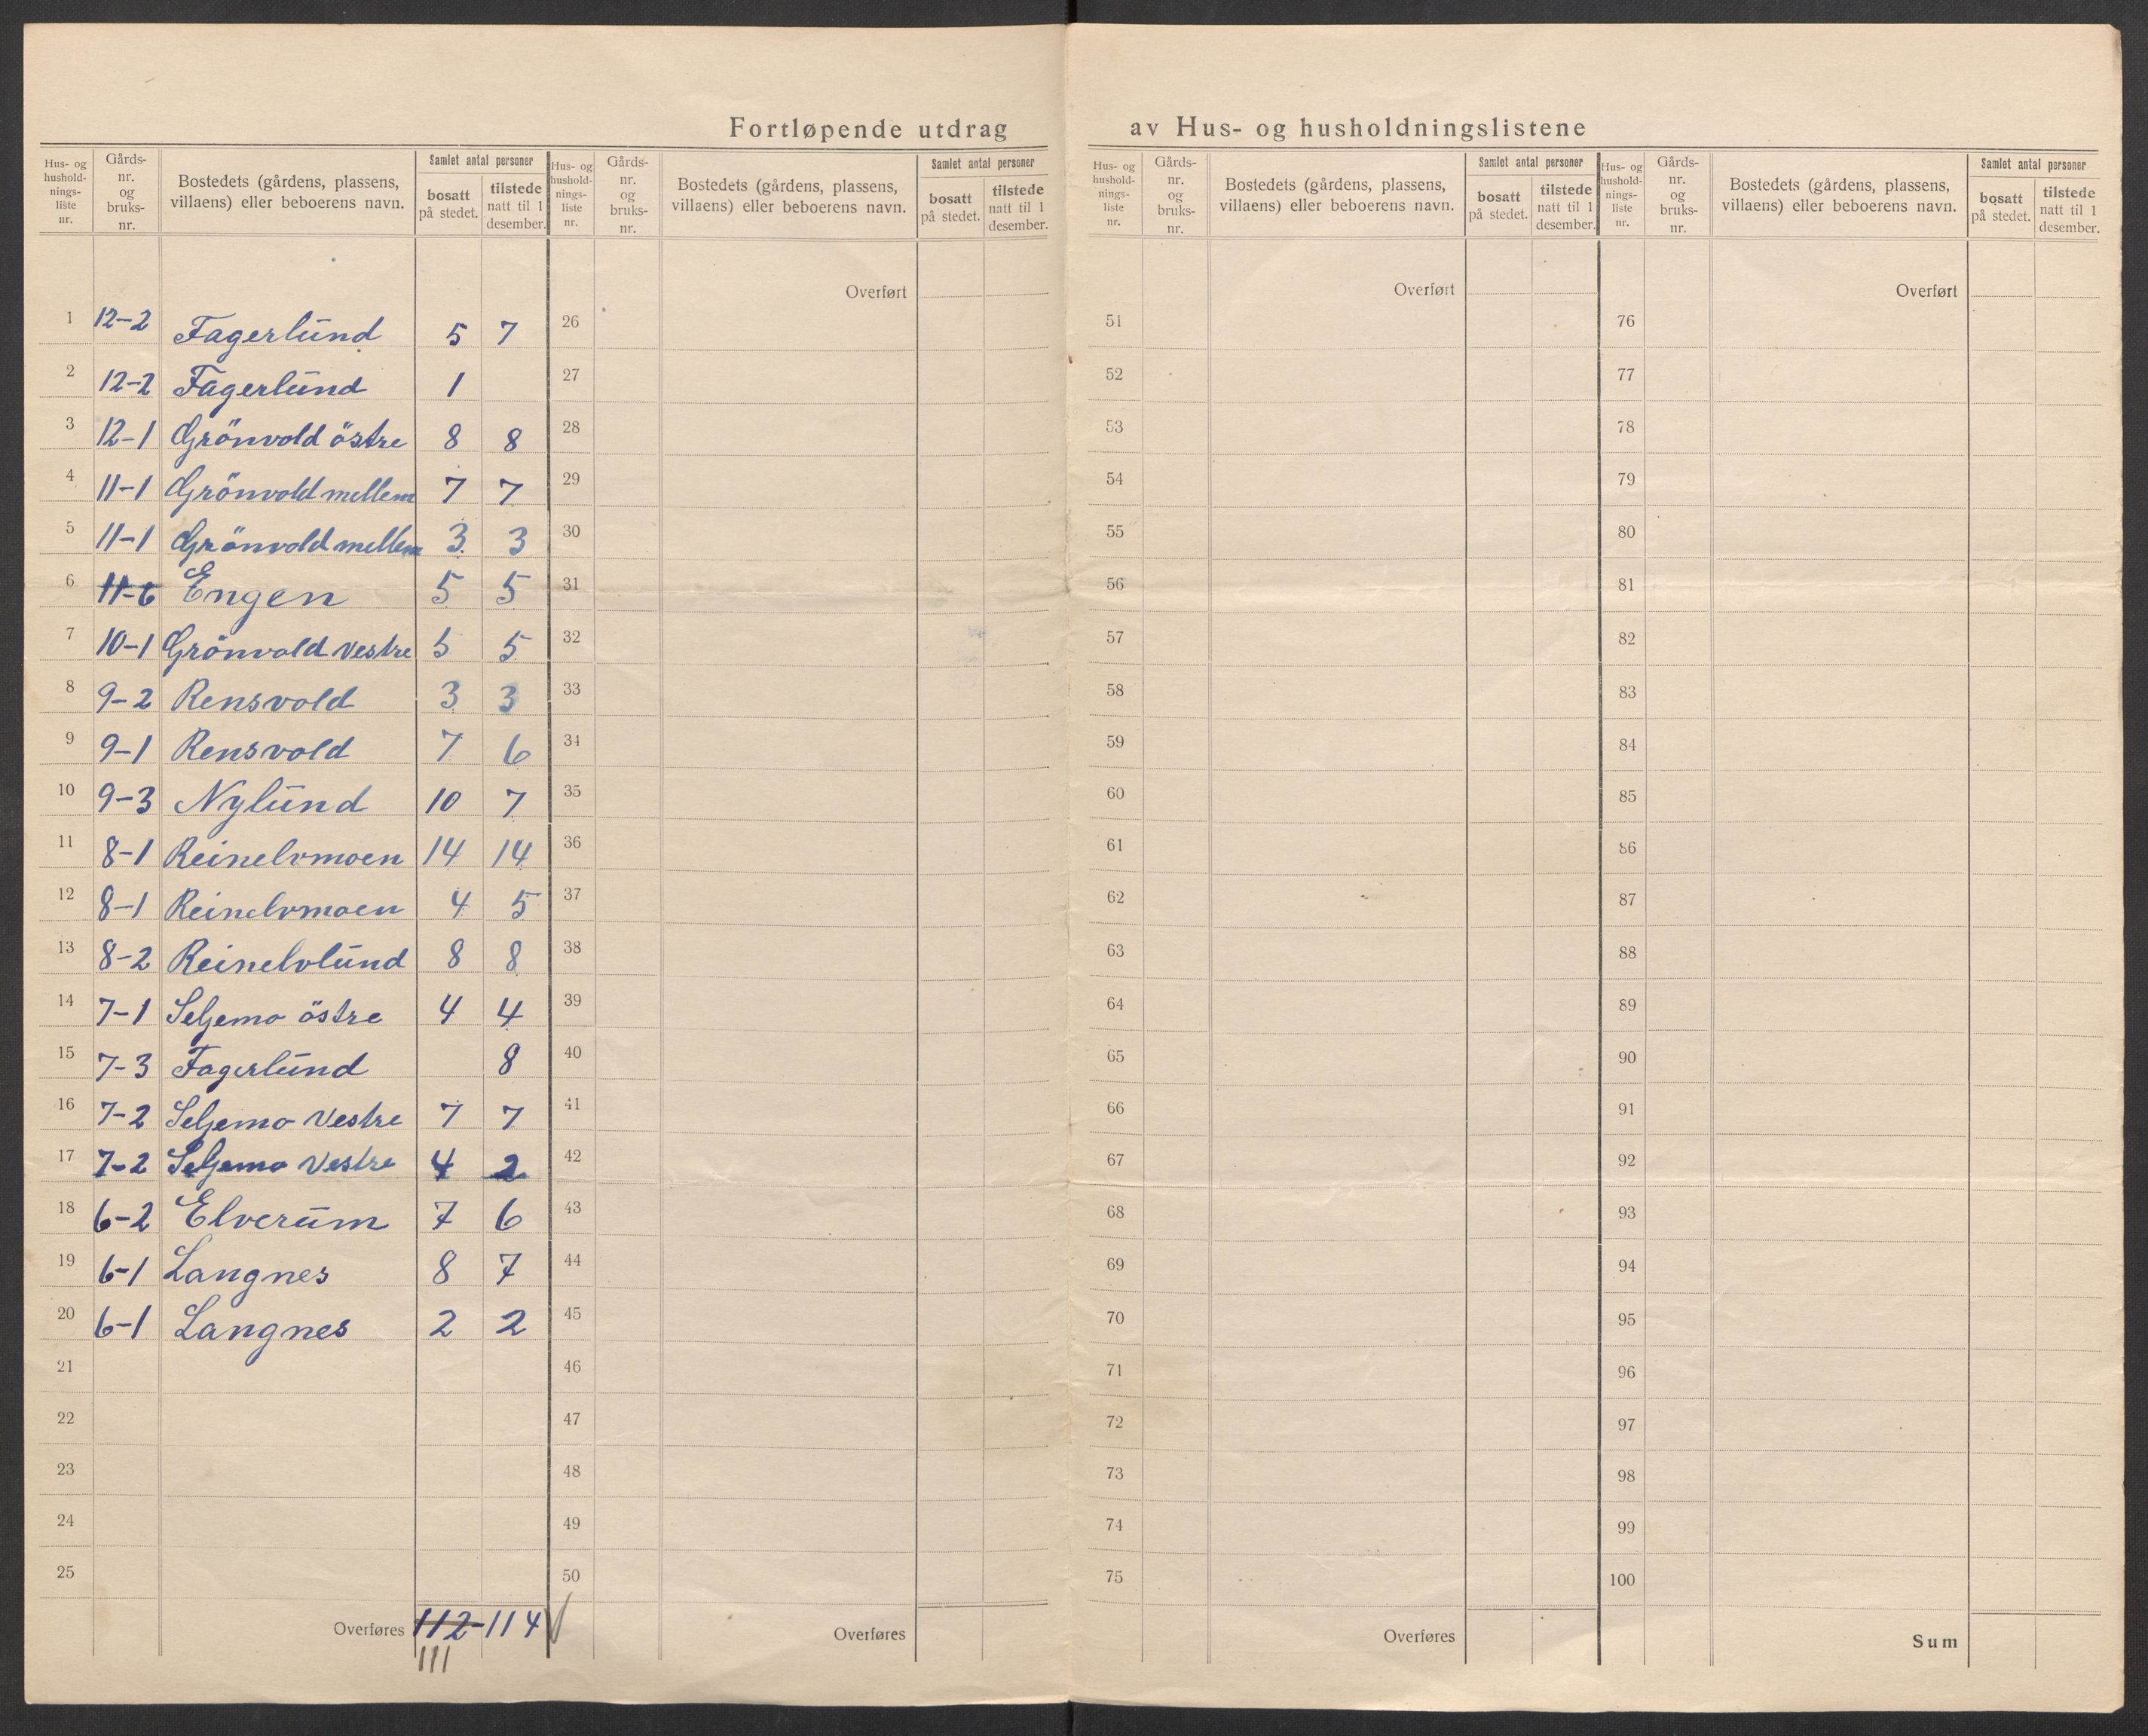 Fortløpende utdrag av Hus- og husholdningslistene
Hus- og husholdnings-liste nr. | Gårds-nr. og bruks-nr. | Bostedets (gårdens, plassens, villaens) eller beboerens navn. | Samlet antal personer bosatt på stedet. | tilstede natt til 1 desember.
1 12-2 Fagerlund 5 7
2 12-2 Fagerlund 1
3 12-1 Grönvold östre 8 8
4 11-1 Grönvold mellem 7 7
5 11-1 Grönvold mellem 3 3
6 11-6 Engen 5 5
7 10-1 Grönvold Vestre 5 5
8 9-2 Rensvold 3 3
9 9-1 Rensvold 7 6
10 9-3 Nylund 10 7
11 8-1 Reinelvmoen 14 14
12 8-1 Reinelvmoen 4 5
13 8-2 Reinelvlund 8 8
14 7-1 Seljemo östre 4 4
15 7-3 Fagerlund 8
16 7-2 Seljemo Vestre 7 7
17 7-2 Seljemo Vestre 4 2
18 6-2 Elverum 7 6
19 6-1 Langnes 8 7
20 6-1 Langnes 2 2
21
22
23
24
25
Overføres 112-114
111
Hus- og husholdnings-liste nr. | Gårds-nr. og bruks-nr. | Bostedets (gårdens, plassens, villaens) eller beboerens navn. | Samlet antal personer bosatt på stedet. | tilstede natt til 1 desember.
Overført
26
27
28
29
30
31
32
33
34
35
36
37
38
39
40
41
42
43
44
45
46
47
48
49
50
Overføres
Hus- og husholdnings-liste nr. | Gårds-nr. og bruks-nr. | Bostedets (gårdens, plassens, villaens) eller beboerens navn. | Samlet antal personer bosatt på stedet. | tilstede natt til 1 desember.
Overført
51
52
53
54
55
56
57
58
59
60
61
62
63
64
65
66
67
68
69
70
71
72
73
74
75
Overføres
Hus- og husholdnings-liste nr. | Gårds-nr. og bruks-nr. | Bostedets (gårdens, plassens, villaens) eller beboerens navn. | Samlet antal personer bosatt på stedet. | tilstede natt til 1 desember.
Overført
76
77
78
79
80
81
82
83
84
85
86
87
88
89
90
91
92
93
94
95
96
97
98
99
100
Sum